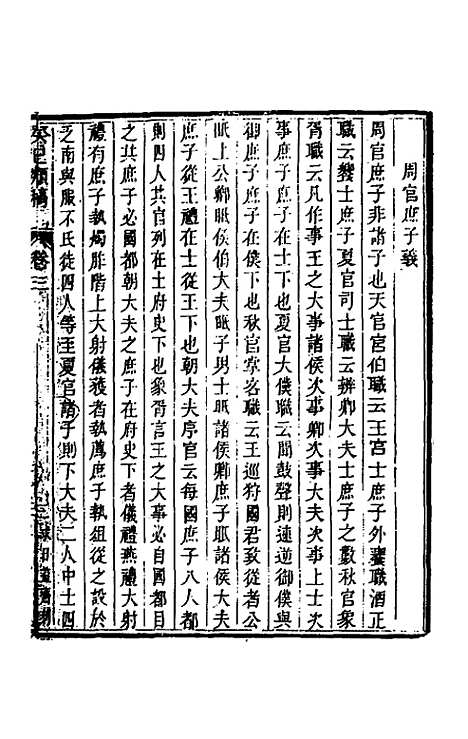 周官庶子義
周官庶子非諸子也天官宮伯職云王宮士庶子外饔職酒正
職云饗士庶子夏官司士職云辨卿大夫士庶子之數秋官象
胥職云凡作事王之大事諸侯次事卿次事大夫次事上士次
事庶子在士下也夏官大僕職云聞鼓聲則速逆御僕與
御庶子在僕下也秋官掌客職云王巡狩國君致從者公
眂上公卿眂侯伯大夫眂子男士眂諸侯卿庶子眂諸侯大夫
庶子從王禮在士下也朝大夫序官云每國庶子八人都
則四人其官列在士府史下也象胥言王之大事必自國都目
之其庶子必國都朝大夫之庶子在府史下者儀禮燕禮大射
禮有庶子執燭阼階上大射儀獲者執薦庶子執俎從之設於
乏南與服不氏徒四人等至夏官諸子則下大夫二人中士四
癸巳類稿 卷三